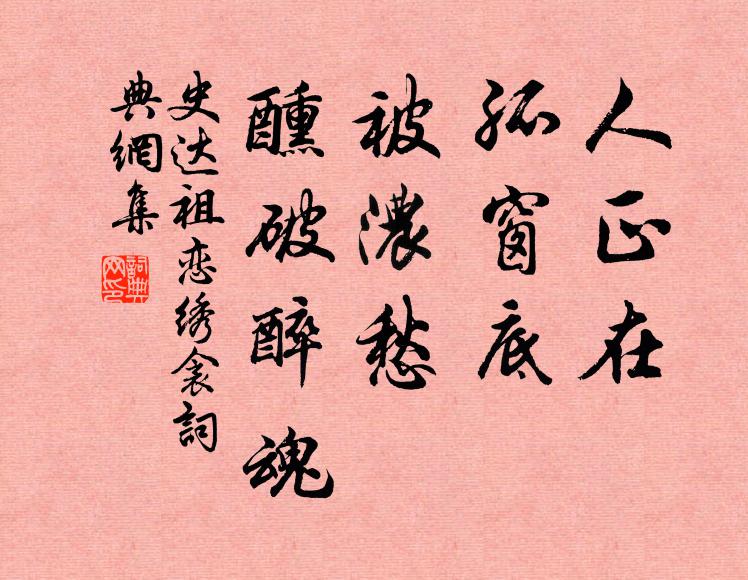 人正在
孤窗底
被濃愁
醺破醉魂
史达祖恋绣衾詞
典網集
詞典網印